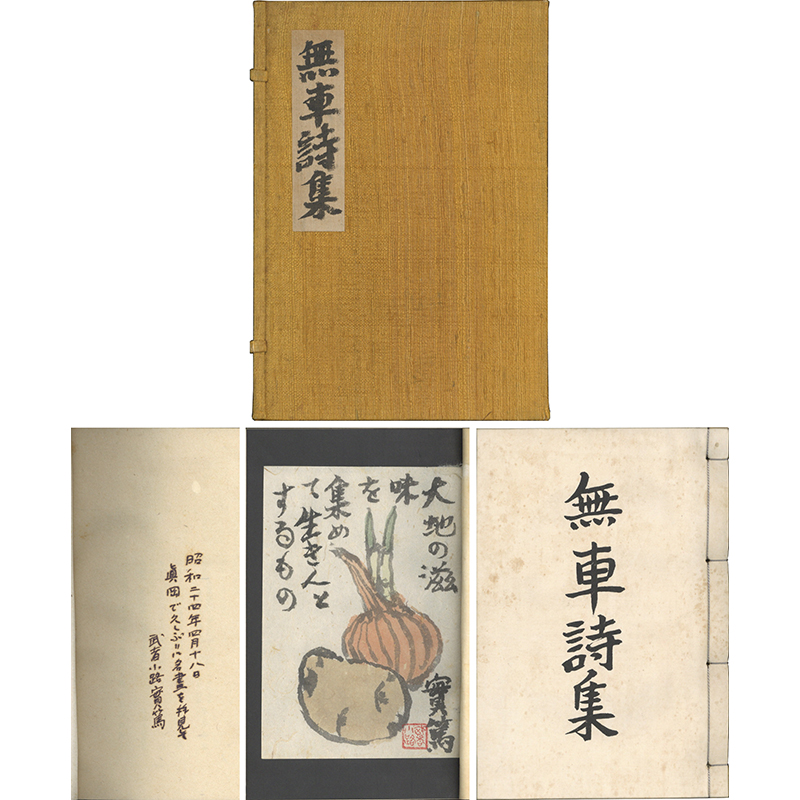 無車詩集
昭和二十四年四月十八日
眞岡で久しぶりに名畫を拝見す
武者小路實篤
大地の滋
味を
集め
て生きんと
するもの
實篤
無車詩集